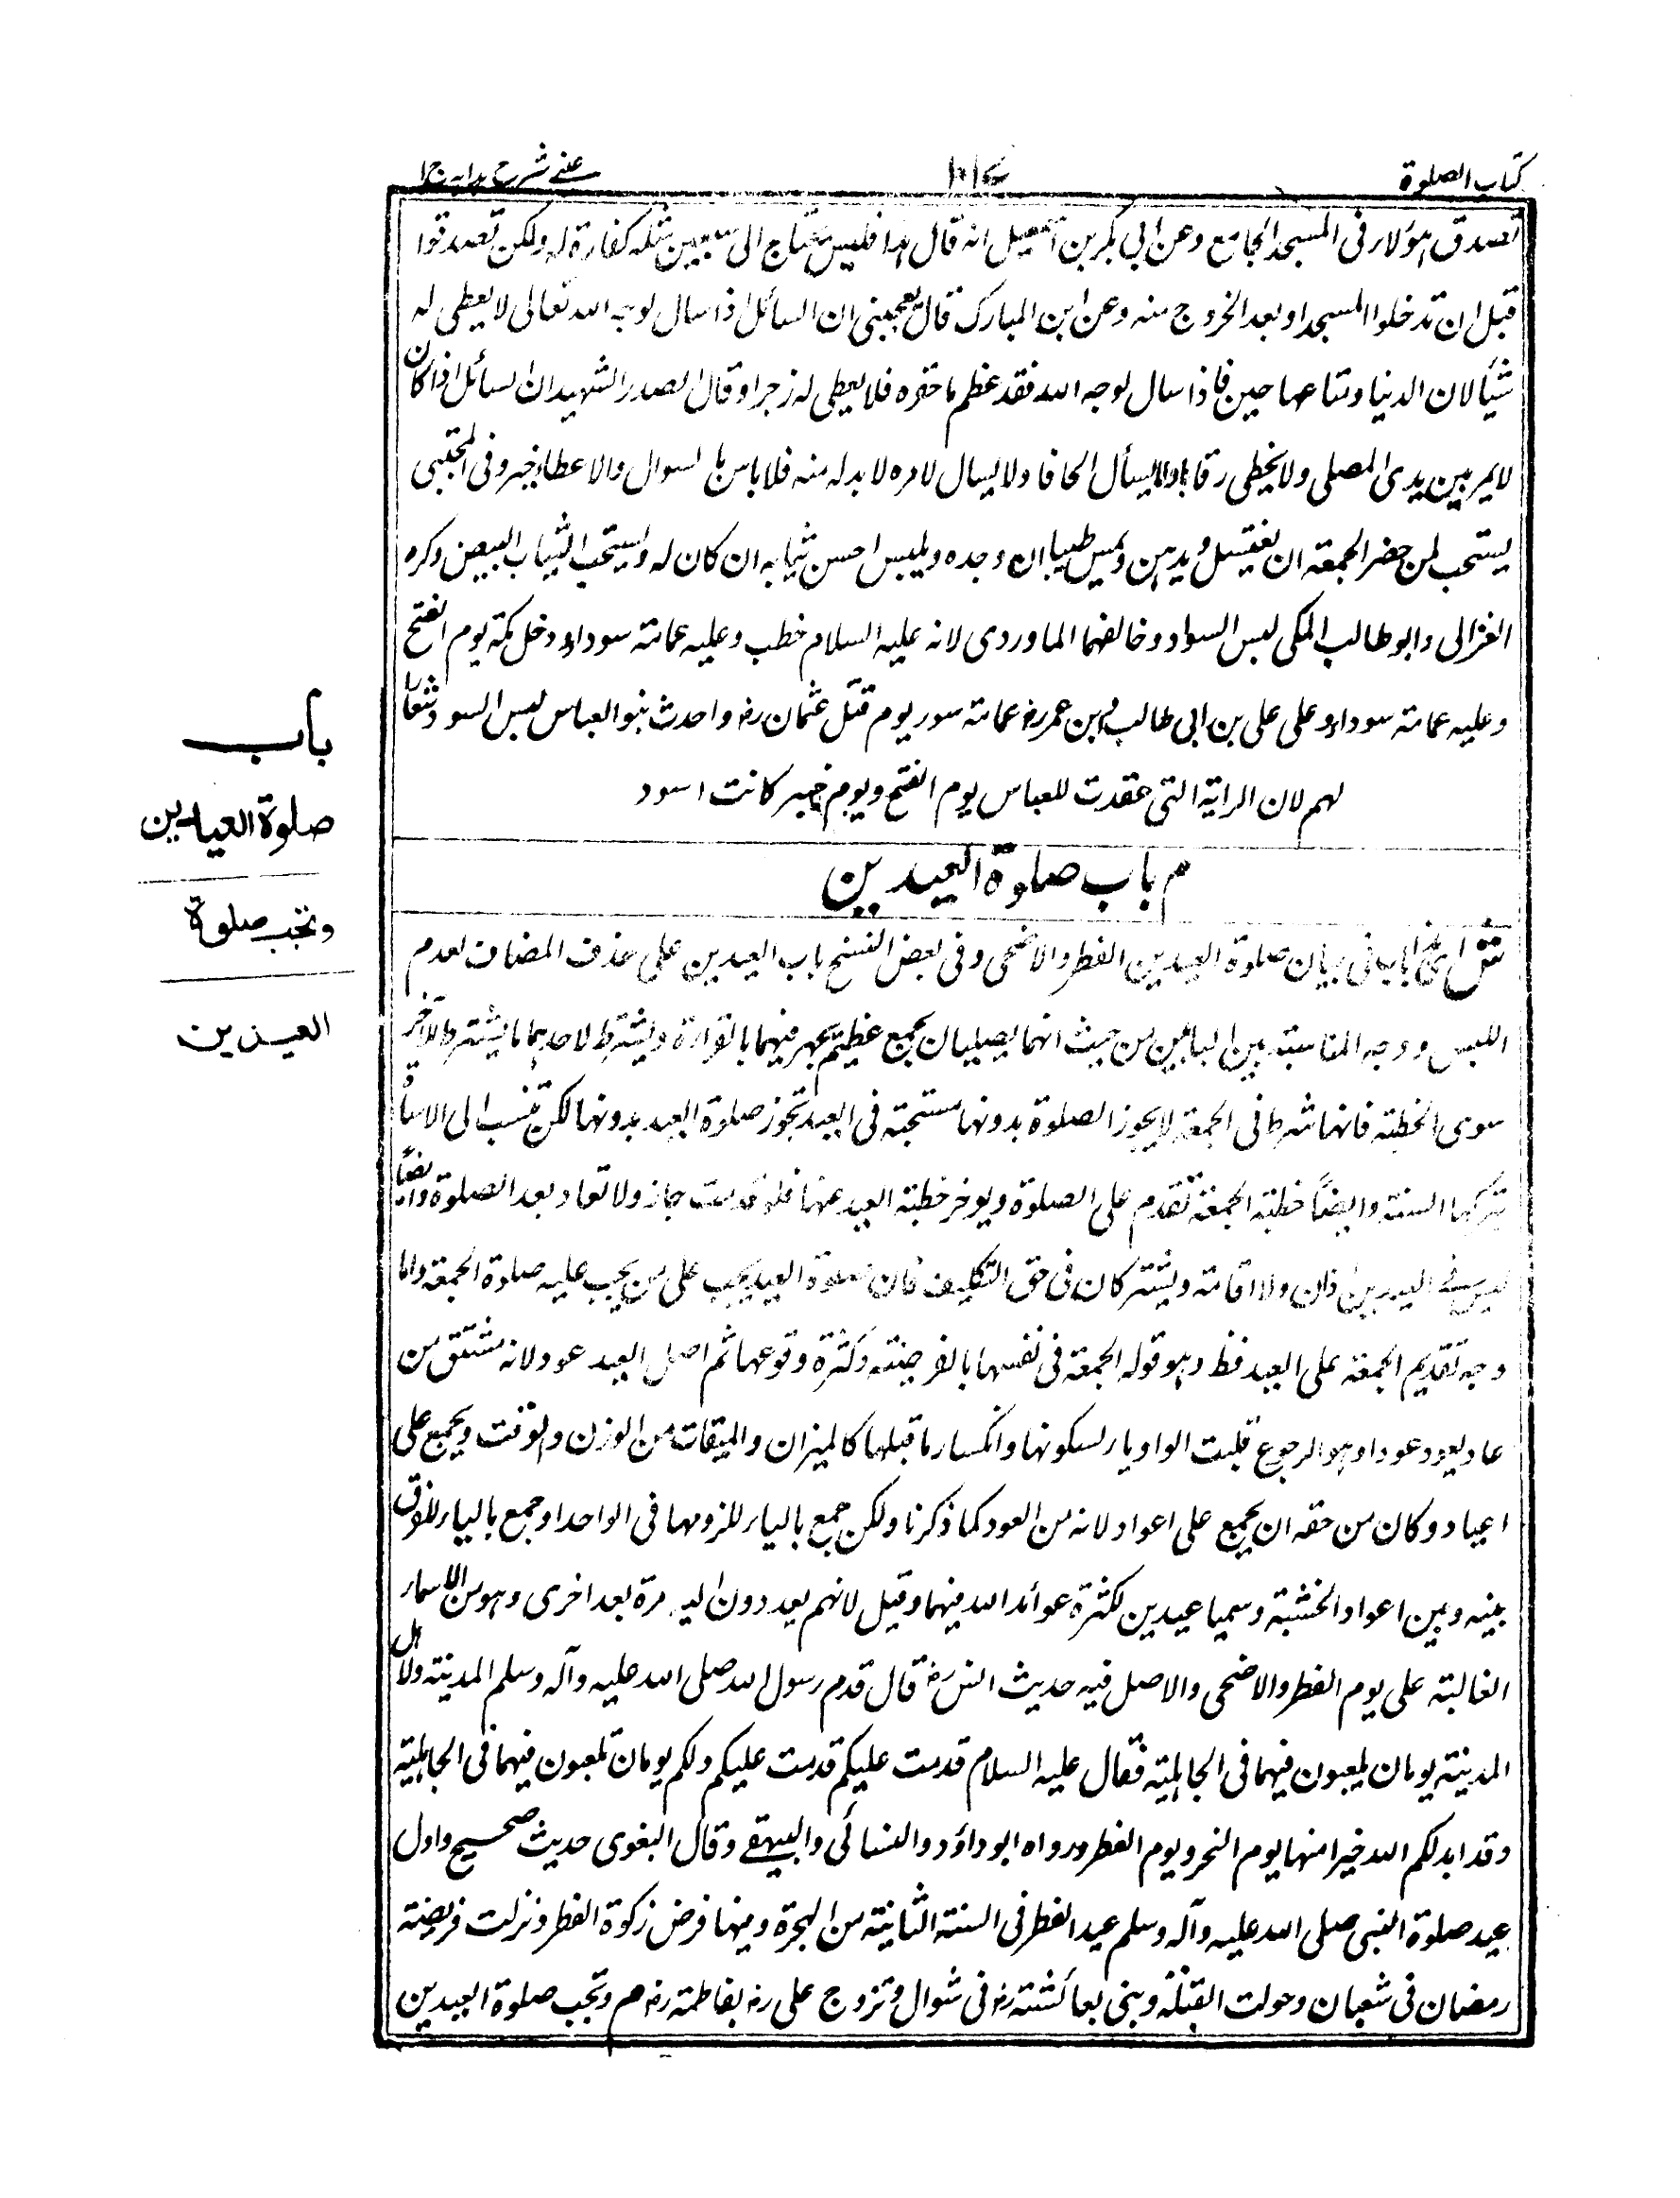 كتاب الصلوة
١٠١٧
عينى شرح هدايه ج ا
تصدق هؤلاء فى المسجد الجامع وعن ابى بكر بن اسمعيل انه قال هذا فليس يحتاج الى سبعين مثله كفارة له ولكن تصدقوا
قبل ان تدخلوا المسجد او بعد الخروج منه وعن ابن المبارك قال يعجبنى ان السائل اذا سال لوجه الله تعالى لا يعطى له
شيأ لان الدنيا ومتاعها حين فاذا سال لوجه الله فقد عظم ما حقره فلا يعطى له زجرا وقال الصدر الشهيد ان السائل اذا كان
لا يمر بين يدى المصلى ولا يخطى رقابا ولا يسأل الحافا ولا يسال لامره لا بد له منه فلا باس بالسوال والاعطاء خير وفى المجتبى
يستحب لمن حضر الجمعة ان يغتسل ويدهن ويمس طيبا ان وجده ويلبس احسن ثيابه ان كان له ويستحب الثياب البيض وكره
الغزالى وابو طالب المكى لبس السواد وخالفهما الماوردى لانه عليه السلام خطب وعليه عمامة سوداء ودخل مكة يوم الفتح
وعليه عمامة سوداء وعلى على بن ابى طالب وابن عمر رض عمامة سود يوم قتل عثمان رض واحدث بنو العباس لبس السود شعارا
لهم لان الراية التى عقدت للعباس يوم الفتح ويوم خيبر كانت اسود
م باب صلوة العيدين
ش اى هذا باب فى بيان صلوة العيدين الفطر والاضحى وفى بعض النسخ باب العيدين على حذف المضاف لعدم
اللبس ووجه المناسبة بين البابين من حيث انهما يصليان بجمع عظيم يجهر فيهما بالقراءة ويشترط لاحدهما ما يشترط للآخر
سوى الخطبة فانها شرط فى الجمعة لا يجوز الصلوة بدونها مستحبة فى العيد تجوز صلوة العيد بدونها لكن ينسب الى الاساءة
بتركها السنة وايضاً خطبة الجمعة تقدم على الصلوة ويوخر خطبة العيد عنها فلو قدمت جاز ولا تعاد بعد الصلوة وايضاً
ليس فى العيدين اذان ولا اقامة ويشتركان فى حق التكليف فان صلوة العيد يجب على من يجب عليه صلوة الجمعة واما
وجه تقديم الجمعة على العيد فظ وهو قوله الجمعة فى نفسها بالفرضية وكثرة وقوعها ثم اصل العيد عود لانه مشتق من
عاد يعود عودا وهو الرجوع قلبت الواو ياء لسكونها وانكسار ما قبلها كالميزان والميقات من الوزن والوقت ويجمع على
اعياد وكان من حقه ان يجمع على اعواد لانه من العود كما ذكرنا ولكن جمع بالياء للزومها فى الواحد او جمع بالياء للفرق
بينه وبين اعواد الخشبة وسميا عيدين لكثرة عوائد الله فيهما وقيل لانهم يعودون اليه مرة بعد اخرى وهو من الاسماء
الغالبة على يوم الفطر والاضحى والاصل فيه حديث انس رض قال قدم رسول الله صلى الله عليه وآله وسلم المدينة ولاهل
المدينة يومان يلعبون فيهما فى الجاهلية فقال عليه السلام قدمت عليكم قدمت عليكم ولكم يومان تلعبون فيهما فى الجاهلية
وقد ابدلكم الله خيرا منها يوم النحر ويوم الفطر ورواه ابو داؤد والنسائى والبيهقى وقال البغوى حديث صحيح واول
عيد صلوة النبى صلى الله عليه وآله وسلم عيد الفطر فى السنة الثانية من الهجرة وفيها فرض زكوة الفطر ونزلت فريضة
رمضان فى شعبان وحولت القبلة وبنى بعائشة رض فى شوال وتزوج على رض بفاطمة رض م وتجب صلوة العيدين
باب
صلوة العيدين
وتجب صلوة
العيدين